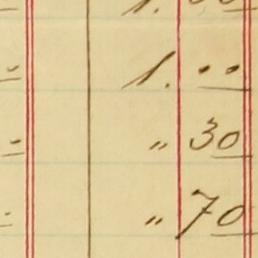 1. ..
" 30
" 70